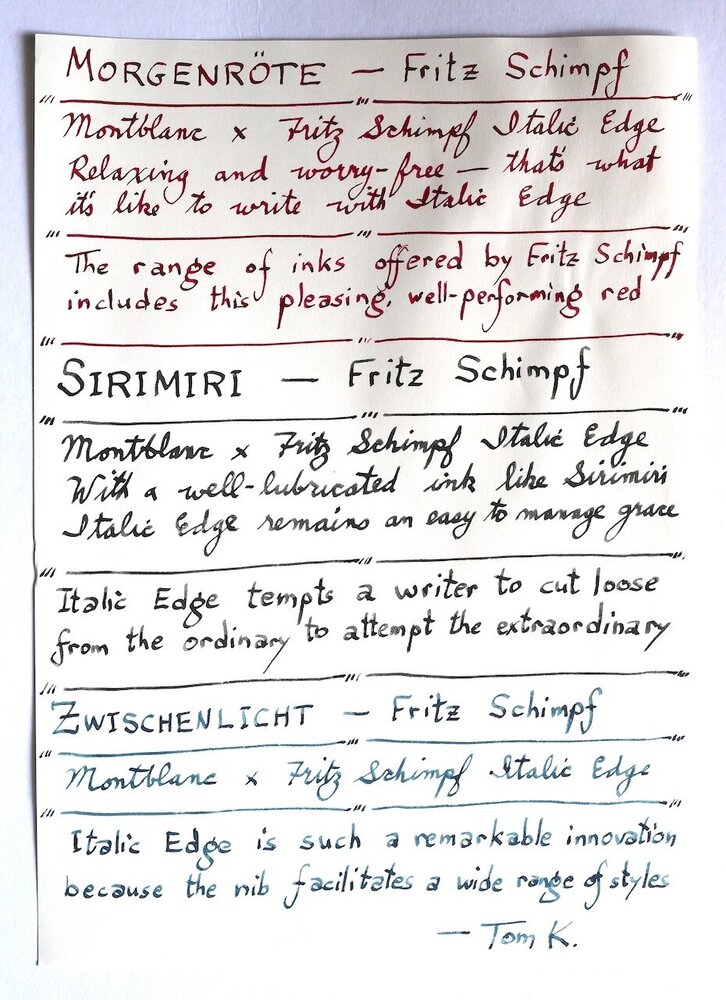 MORGENRÖTE — Fritz Schimpf
Montblanc x Fritz Schimpf Italic Edge
Relaxing and worry-free — that's what
it's like to write with Italic Edge
The range of inks offered by Fritz Schimpf
includes this pleasing, well-performing red
SIRIMIRI — Fritz Schimpf
Montblanc x Fritz Schimpf Italic Edge
With a well-lubricated ink like Sirimiri
Italic Edge remains an easy to manage grace
Italic Edge tempts a writer to cut loose
from the ordinary to attempt the extraordinary
ZWISCHENLICHT — Fritz Schimpf
Montblanc x Fritz Schimpf Italic Edge
Italic Edge is such a remarkable innovation
because the nib facilitates a wide range of styles
— Tom K.